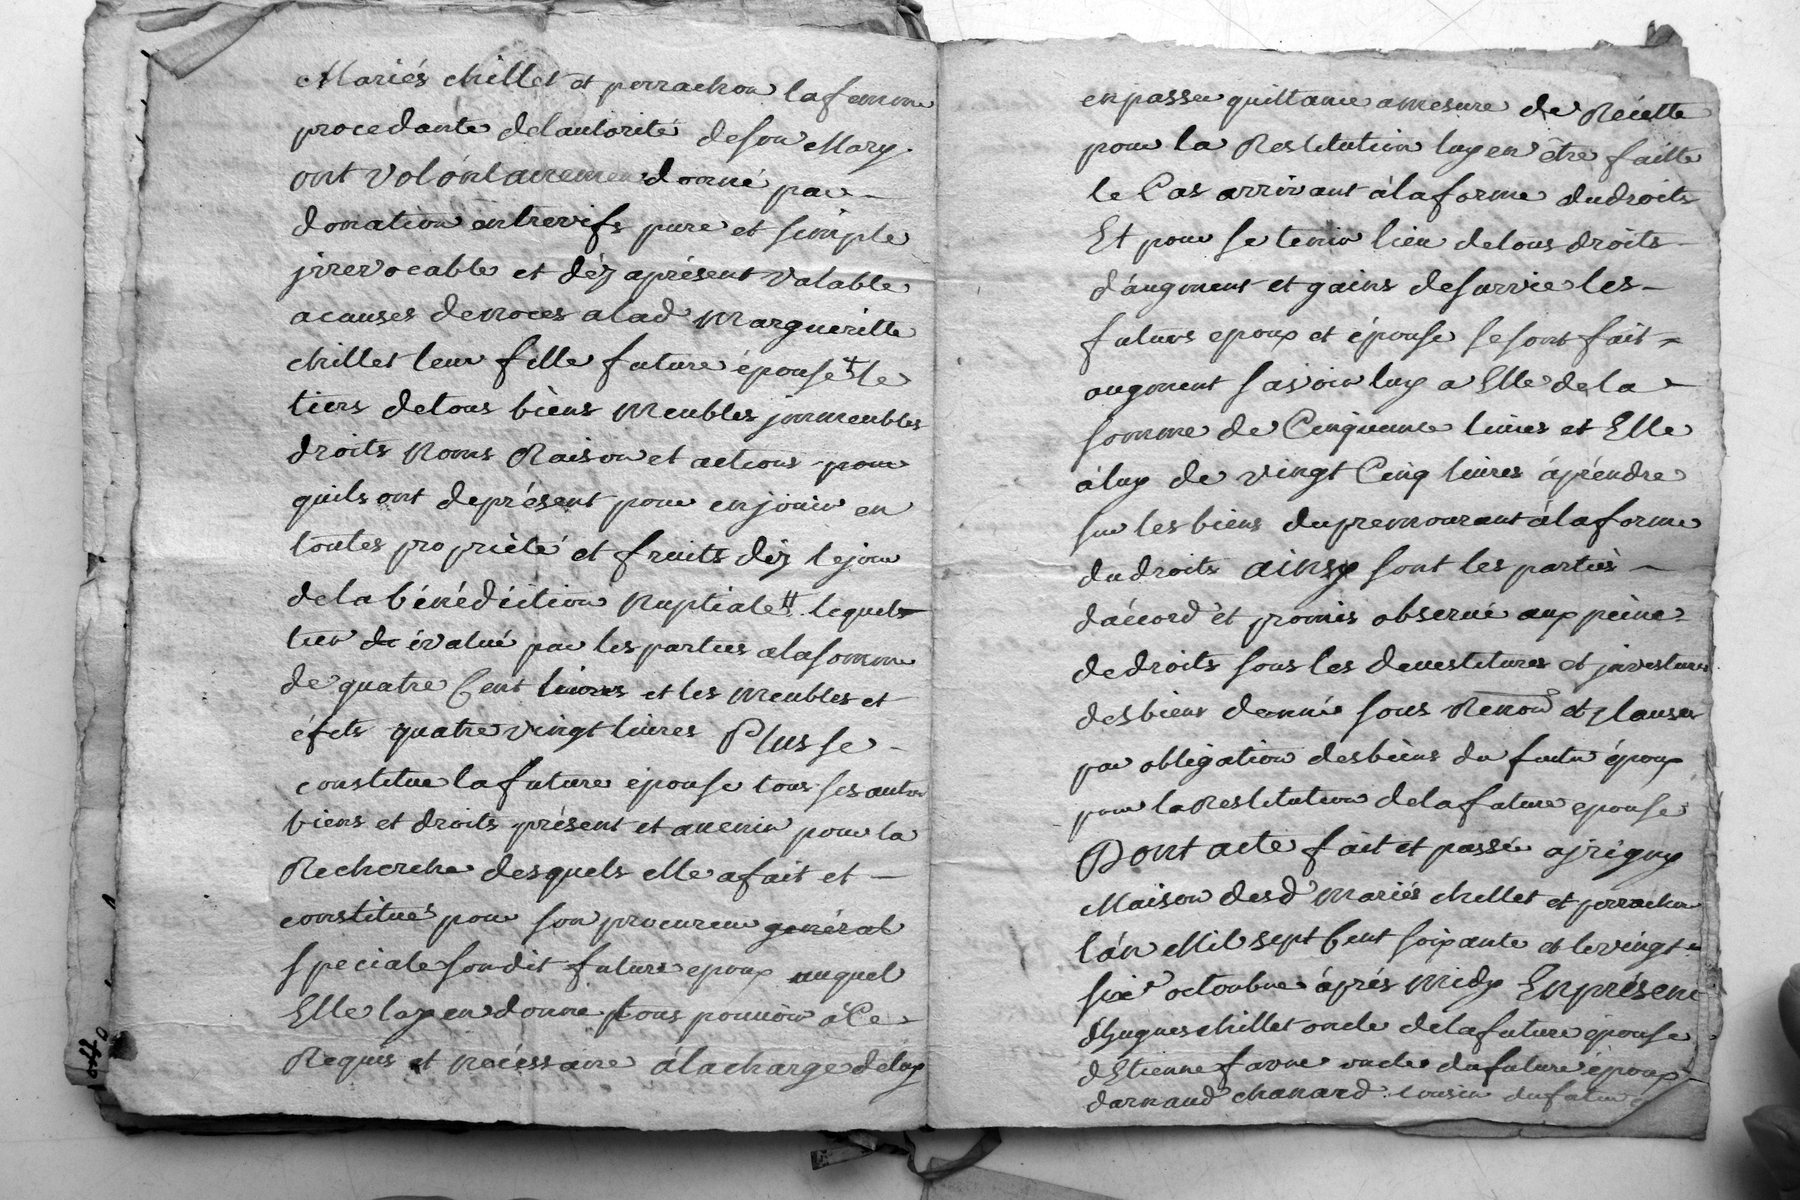 Mariés chillet et perrachon la femme
procedante delautorité deson Mary
ont volontairement donné par
donation entrevifs pure et simple
jrrevocable et déz aprésent valable
acauses denoces alad Margueritte
chillet leur fille future épouse le
tiers detous biens meubles jmmeubles
droits noms Raison et actions pour
quils ont deprésent pour enjouir en
toutes propriété et fruits déz lejour
dela bénédiction nuptiale lequel
tier de évalué par les parties alasomme
de quatre Cent livres et les meubles et
éfets quatre vingt livres Plus se
constitue lafuture épouse tous ses autres
biens et droits présent et avenir pour la
Recherche desquels elle afait et
constitue pour son procureur général
speciale sondit futur epoux auquel
Elle laxen donne tous pouvoir à Ce
Requis et nécessaire àlacharge deluy
enpasser quittance amesure de Récette
pour la Restitution luy en être faitte
le Cas arrivant àlaforme dudroits
Et pour se tenir lieu detous droits
daugment et gains desurvie les
futurs epoux et épouse sesont fait
augment savoir luy a Elle dela
somme de Cinquante livres et Elle
àluy de vingt Cinq livres àpréndre
sur les biens dupremourant àlaforme
dudroits ainsy sont les parties
dáccord et promis observé aux peine
dedroits sous les devestitures et jnvestures
desbiens donné sous Renon et Clauses
par obligation desbiens du futur époux
pour laRestitution delafuture epouse
Dont acte fait et passé ajrigny
Maison desd mariés chillet et perrachon
lán Mil sept Cent soixante et levingt
six octoubre áprés midy Enprésence
dhugues chillet oncle delafuture épouse
dEtienne favre oncle dufuture époux
darnaud chanard cousin dufutur